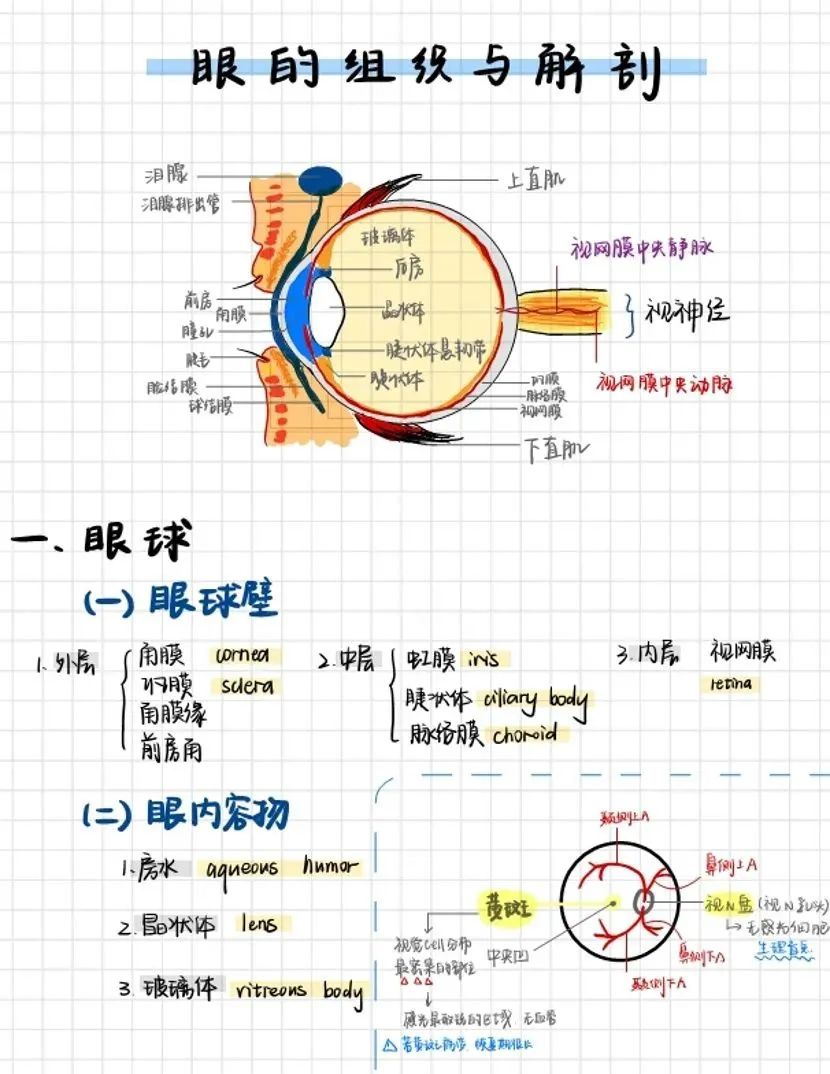 眼的组织与解剖
泪腺
泪腺排出管
上直肌
玻璃体
后房
视网膜中央静脉
前房
角膜
晶状体
视神经
瞳孔
睫状体悬韧带
睫毛
睫状体
睑结膜
球结膜
巩膜
脉络膜
视网膜
视网膜中央动脉
下直肌
一、眼球
(一) 眼球壁
1. 外层
角膜 cornea
巩膜 sclera
角膜缘
前房角
2. 中层
虹膜 iris
睫状体 ciliary body
脉络膜 choroid
3. 内层 视网膜
retina
(二) 眼内容物
1. 房水 aqueous humor
2. 晶状体 lens
3. 玻璃体 vitreous body
颞侧上A
鼻侧上A
黄斑
视N盘 (视N乳头)
无感光细胞
生理盲点
视觉cell分布
最密集的部位
中央凹
鼻侧下A
颞侧下A
无血管